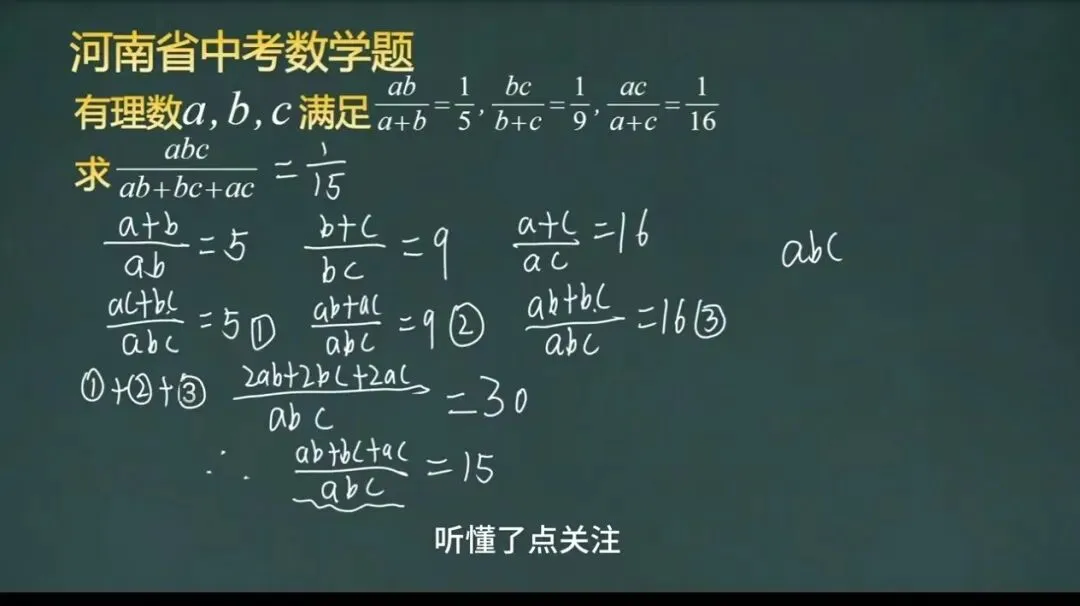 河南省中考数学题
有理数a,b,c 满足 ab/(a+b)=1/5, bc/(b+c)=1/9, ac/(a+c)=1/16
求 abc/(ab+bc+ac) = 1/15
(a+b)/ab=5 (b+c)/bc=9 (a+c)/ac=16 abc
(ac+bc)/abc=5① (ab+ac)/abc=9② (ab+bc)/abc=16③
①+②+③ (2ab+2bc+2ac)/abc=30
∴ (ab+bc+ac)/abc=15
听懂了点关注